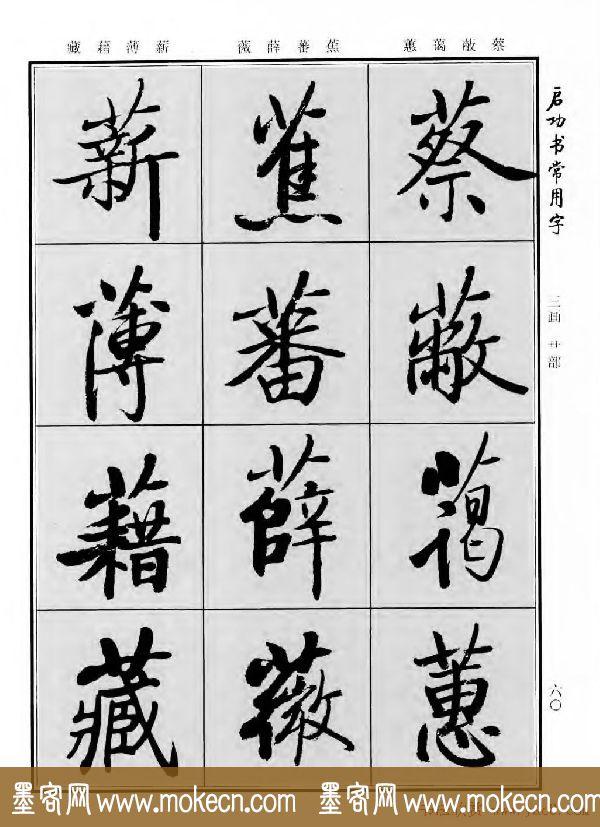 启功书常用字
三画 艹部
六〇
蔡蔽蔼蕙
蕉蕃薛薇
薪薄藉藏
蔡
蔽
蔼
蕙
蕉
蕃
薛
薇
薪
薄
藉
藏
墨客网 www.mokecn.com 墨客网 www.mokecn.com